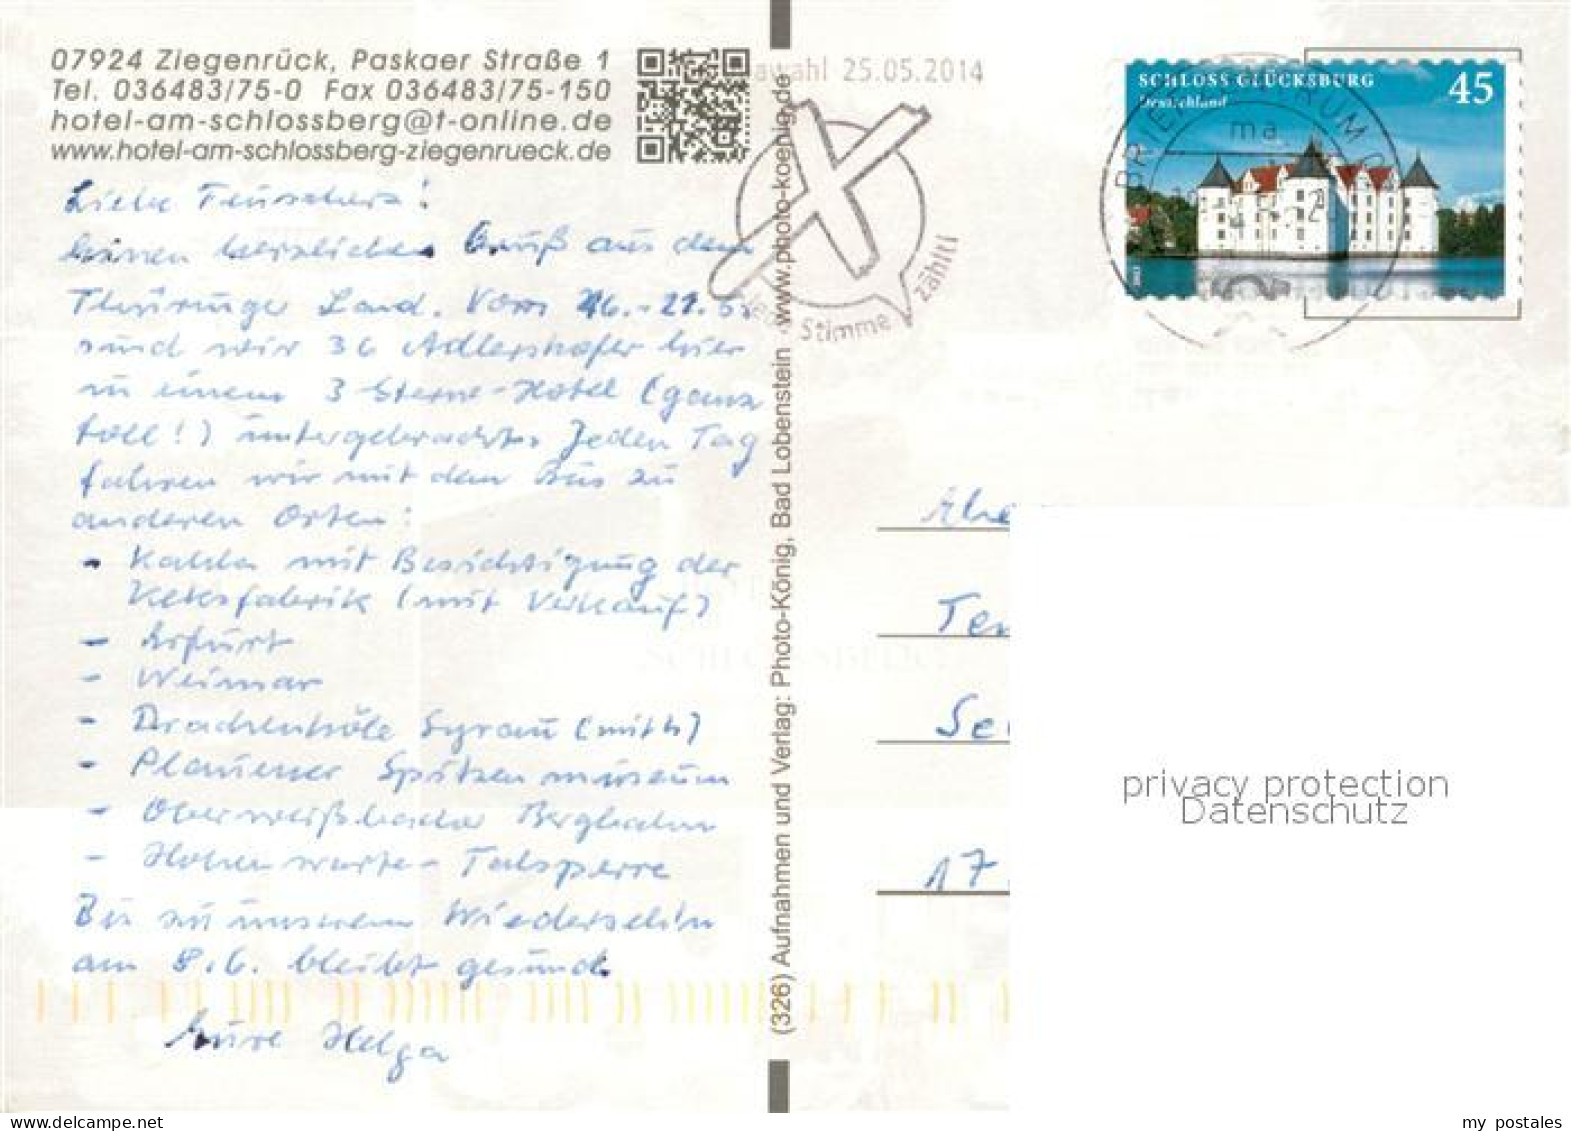 07924 Ziegenrück, Paskaer Straße 1
Tel. 036483/75-0 Fax 036483/75-150
hotel-am-schlossberg@t-online.de
www.hotel-am-schlossberg-ziegenrueck.de
Liebe
einen herzlichen Gruß aus dem
Thüringer Land. Vom 16.-21.5.
sind wir 36 Adlershofer hier
in einem 3 Sterne-Hotel (ganz
toll!) untergebracht. Jeden Tag
fahren wir mit dem Bus zu
anderen Orten:
- Kahla mit Besichtigung der
Keksfabrik (mit Verkauf)
- Erfurt
- Weimar
- Drachenhöle Syrau
- Plauener Spitzenmuseum
- Oberweißbacher Bergbahn
- Hohenwarte-Talsperre
Bis zu unserem Wiedersehn
am 8.6. bleibt gesund
Eure Helga
(326) Aufnahmen und Verlag: Photo-König, Bad Lobenstein www.photo-koenig.de
wahl 25.05.2014
Stimme zählt!
SCHLOSS GLÜCKSBURG
Deutschland
45
BRIEFZENTRUM
ma
Ten
17
privacy protection
Datenschutz
my postales